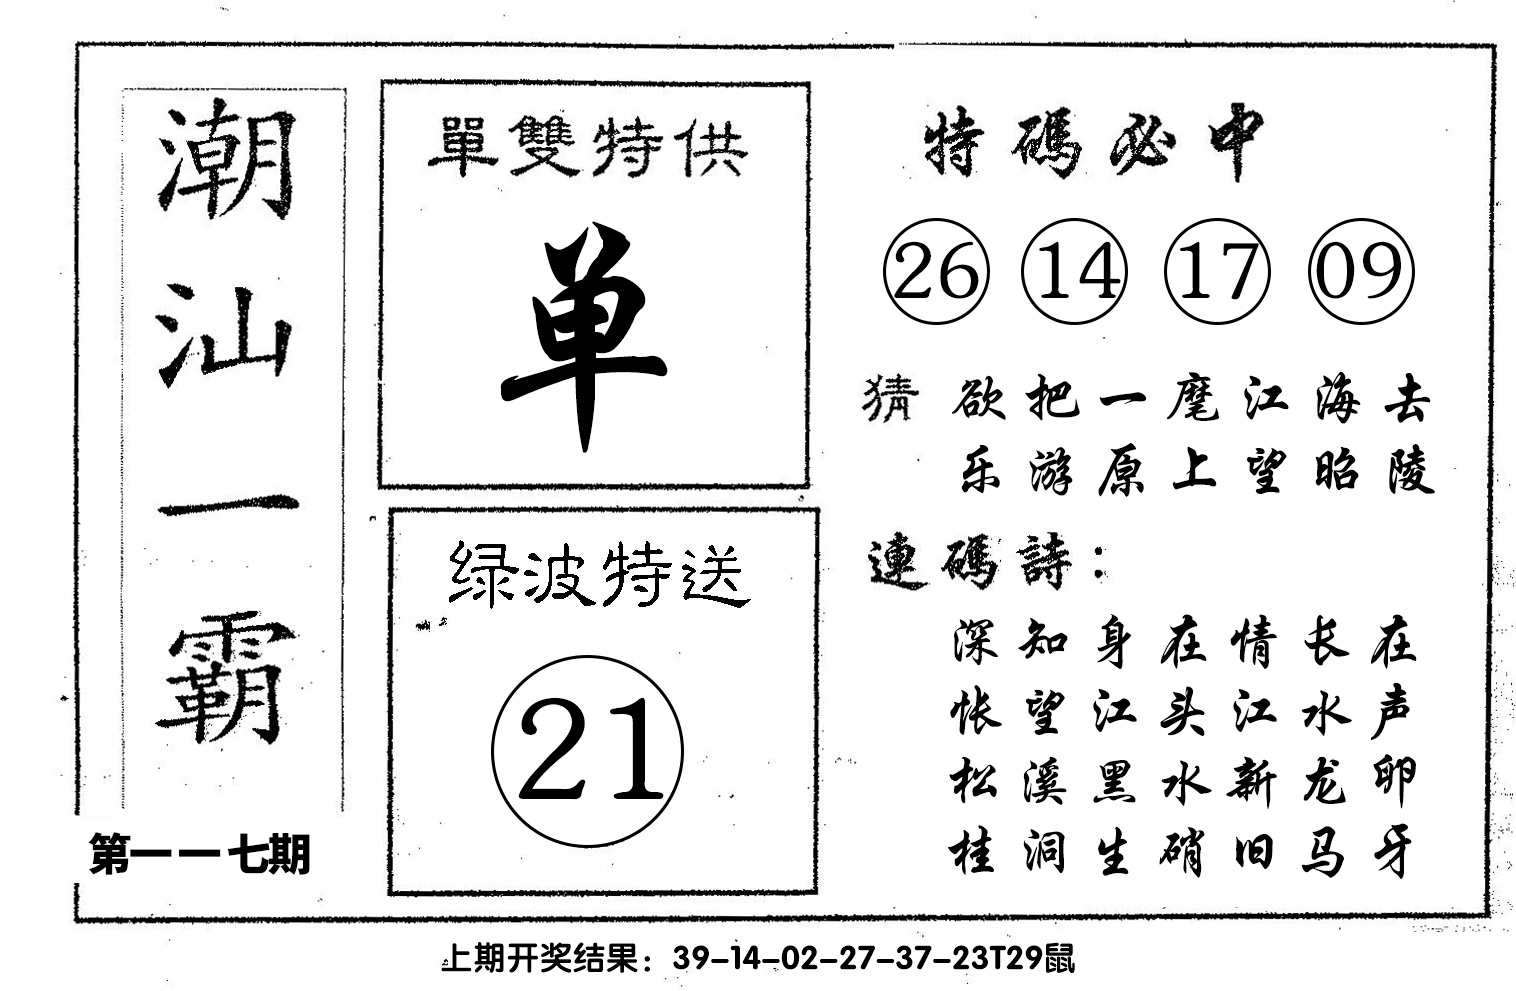 潮汕一霸
第一一七期
單雙特供
单
绿波特送
21
特碼必中
26 14 17 09
猜 欲把一麾江海去
乐游原上望昭陵
連碼詩：
深知身在情长在
怅望江头江水声
松溪黑水新龙卵
桂洞生硝旧马牙
上期开奖结果：39-14-02-27-37-23T29鼠